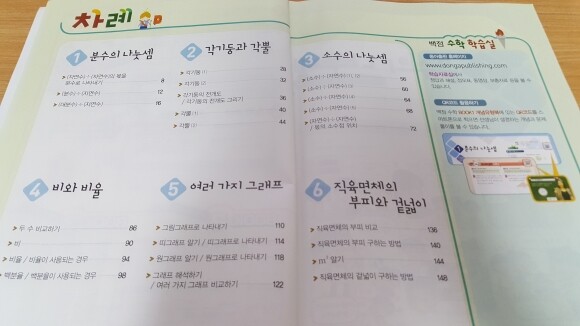 차례
1 분수의 나눗셈
(자연수)÷(자연수)의 몫을
분수로 나타내기 8
(분수)÷(자연수) 12
(대분수)÷(자연수) 16
2 각기둥과 각뿔
각기둥 (1) 28
각기둥 (2) 32
각기둥의 전개도
/ 각기둥의 전개도 그리기 36
각뿔 (1) 40
각뿔 (2) 44
3 소수의 나눗셈
(소수)÷(자연수) (1), (2) 56
(소수)÷(자연수) 60
(소수)÷(자연수) 64
(소수)÷(자연수) 68
(자연수)÷(자연수)
/ 몫의 소수점 위치 72
4 비와 비율
두 수 비교하기 86
비 90
비율 / 비율이 사용되는 경우 94
백분율 / 백분율이 사용되는 경우 98
5 여러 가지 그래프
그림그래프로 나타내기 110
띠그래프 알기 / 띠그래프로 나타내기 114
원그래프 알기 / 원그래프로 나타내기 118
그래프 해석하기
/ 여러 가지 그래프 비교하기 122
6 직육면체의
부피와 겉넓이
직육면체의 부피 비교 136
직육면체의 부피 구하는 방법 140
m³ 알기 144
직육면체의 겉넓이 구하는 방법 148
백점 수학 학습실
www.dongapublishing.com
1 분수의 나눗셈